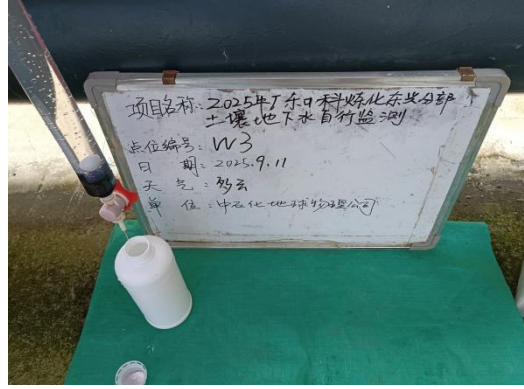 项目名称：2025年广东中科炼化东兴分部
土壤地下水自行监测
点位编号：W3
日　期：2025.9.11
天　气：多云
单　位：中石化地球物理公司